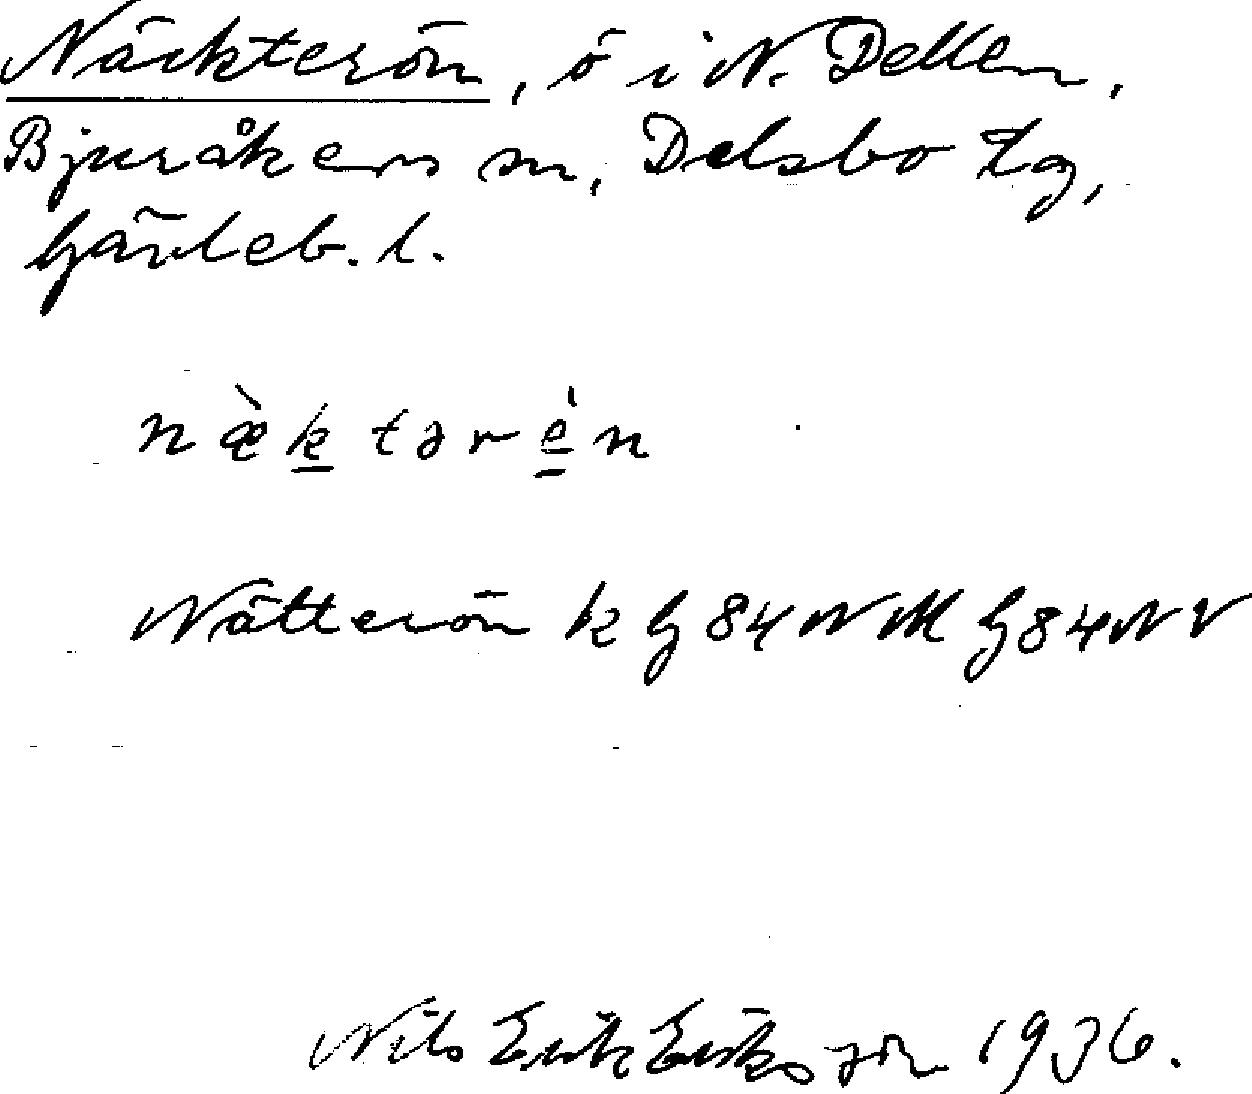 Näckterön, ö i N. Dellen,
Bjuråkers sn, Delsbo tg,
Gävleb. l.
næ̀ktərèn
Nätterön k G 84 NM G 84 NV
Nils Erik Eriksson 1936.